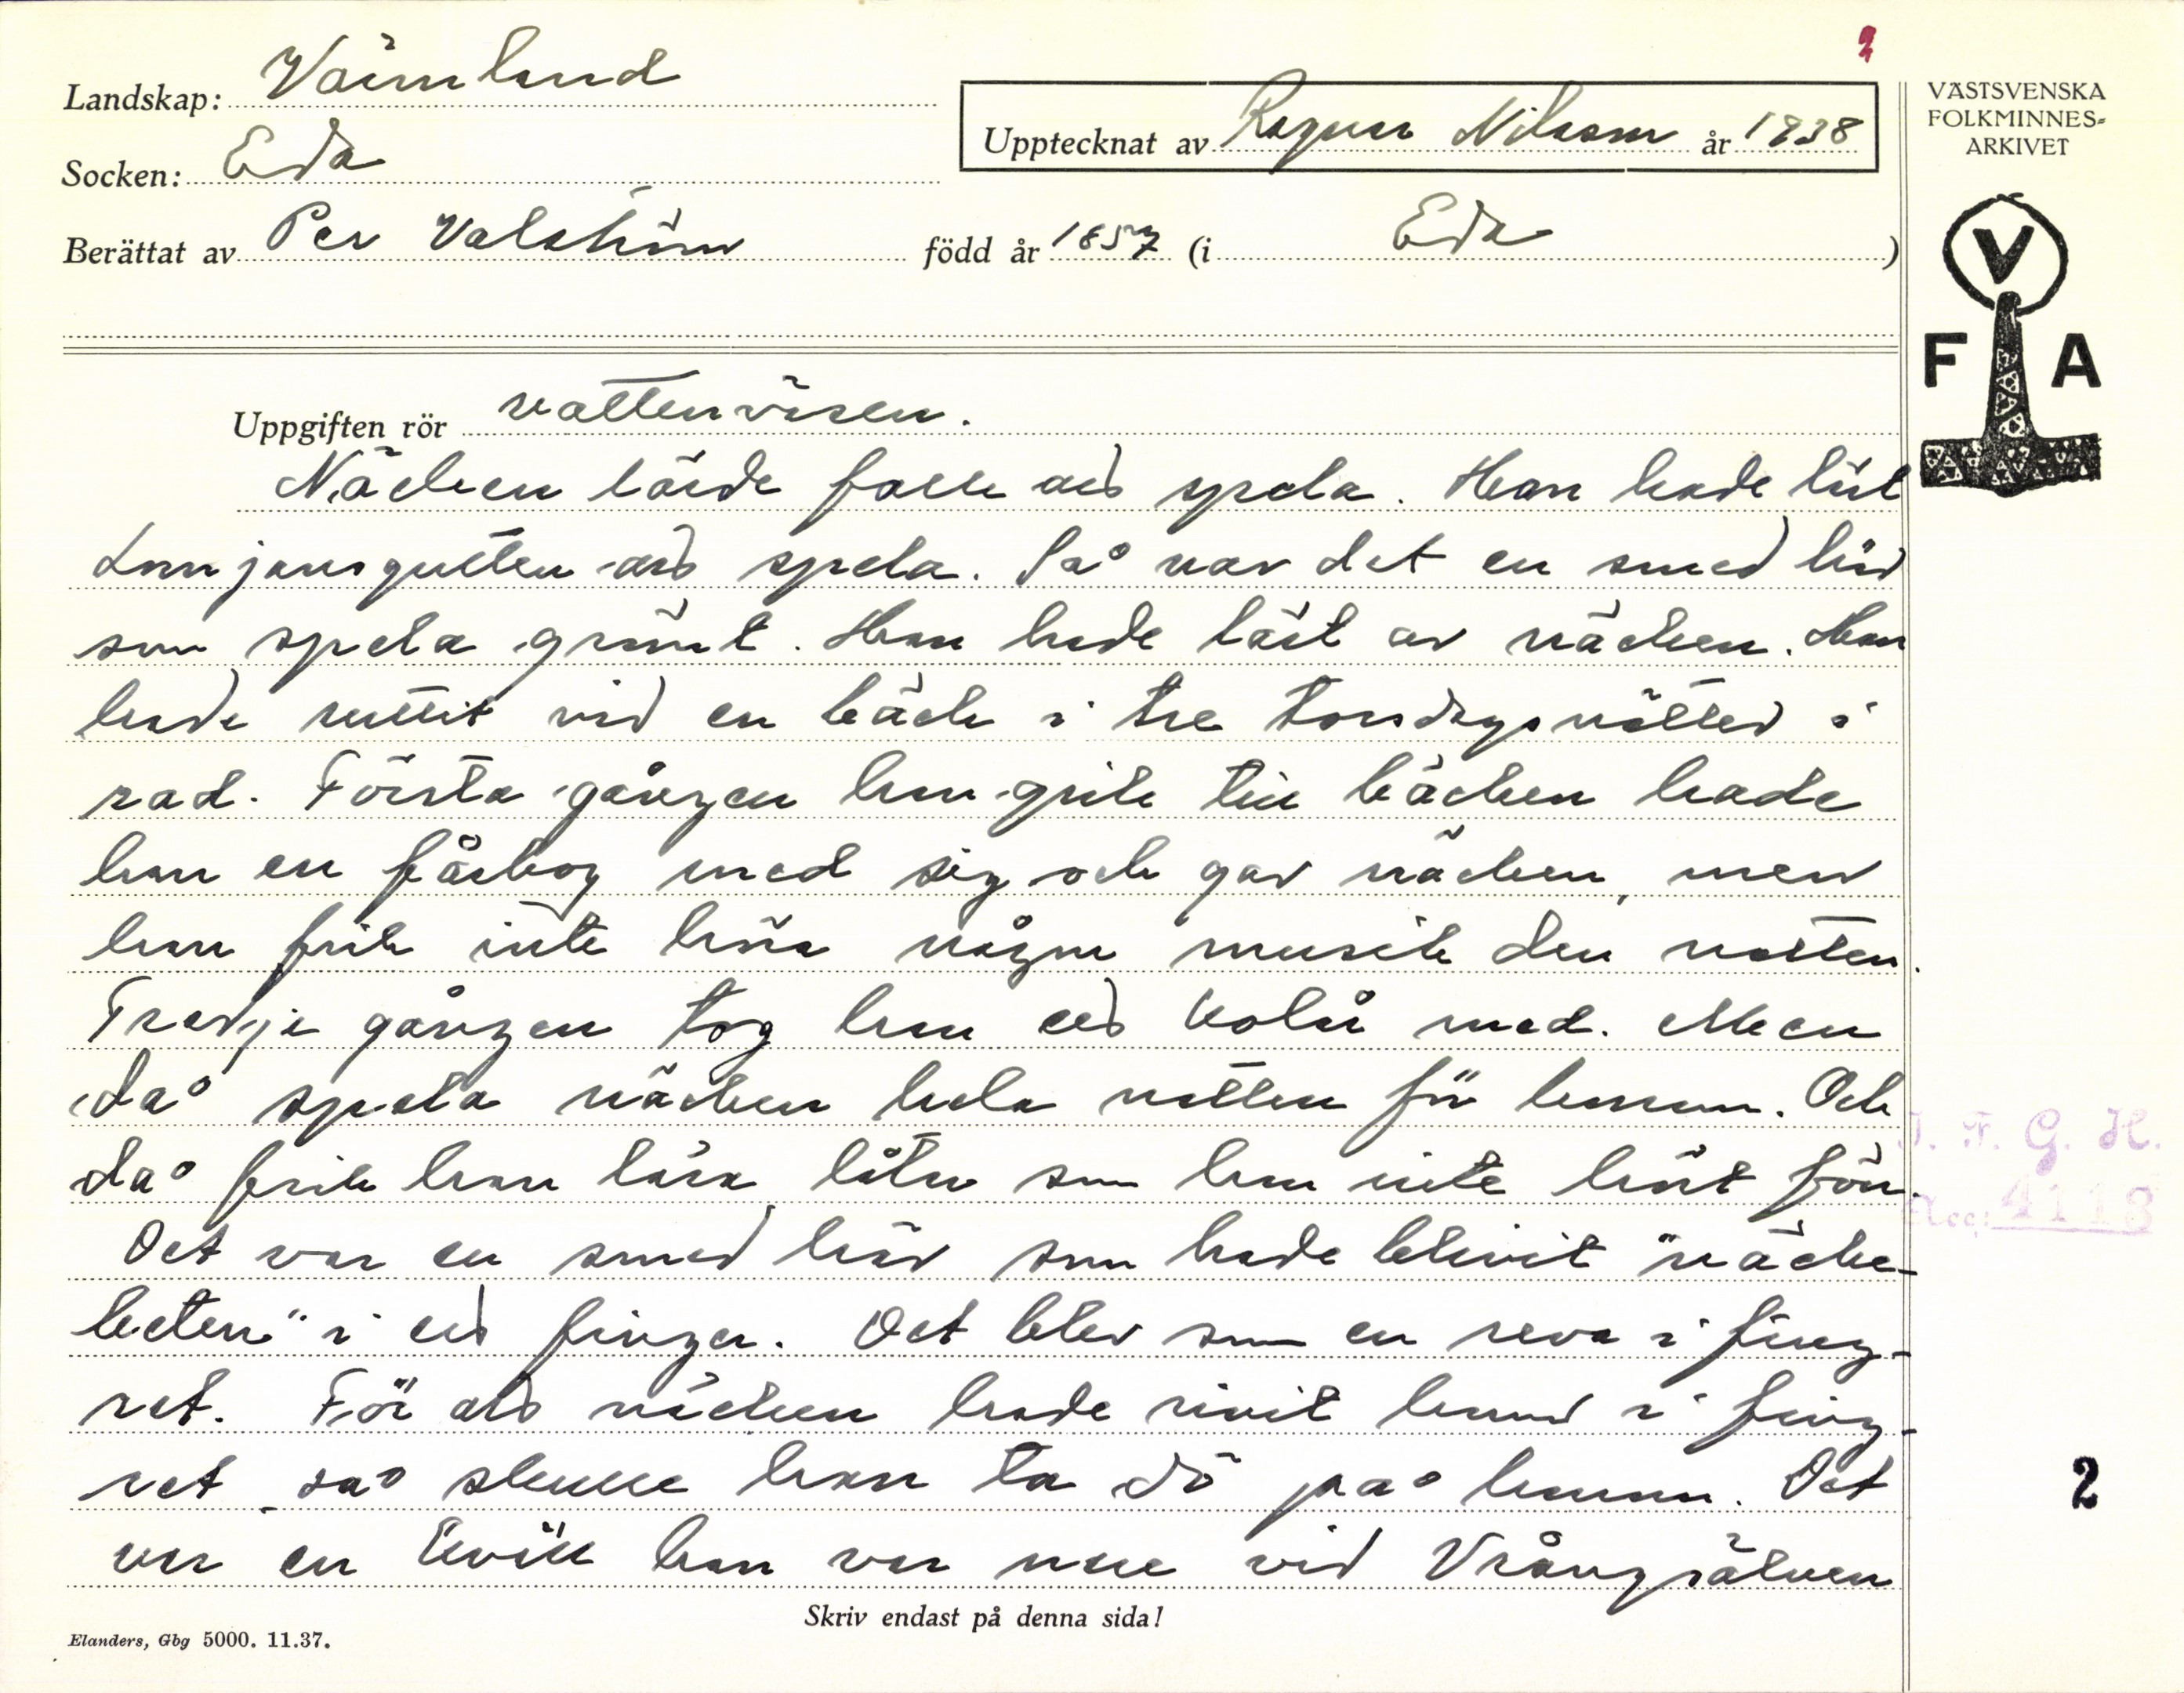 2
Landskap: Värmland
Socken: Eda
Upptecknat av Ragnar Nilsson år 1938
Berättat av Per Valström född år 1857 (i Eda)
VÄSTSVENSKA
FOLKMINNES=
ARKIVET
V
F A
Uppgiften rör vattenväsen.
Näcken lärde folk att spela. Han hade lärt
Lomjansgutten att spela. Så var det en smed här
som spela grömt. Han hade lärt av näcken. Han
hade suttit vid en bäck i tre torsdagsnätter i
rad. Första gången han gick till bäcken hade
han en fårbog med sig och gav näcken, men
han fick inte höra någon musik den natten.
Tredje gången tog han ett kolü med. Men
då spela näcken hela natten för honom. Och
då fick han lära låtar som han inte hört förr.
Det var en smed här som hade blivit "näcke-
beten" i ett finger. Det blev som en reva i fing-
ret. För att näcken hade rivit honom i fing-
ret så skulle han ta dö på honom. Det
var en kväll han var nere vid Vrångsälven
I. F. G. H.
Acc: 4113
2
Skriv endast på denna sida!
Elanders, Gbg 5000. 11.37.